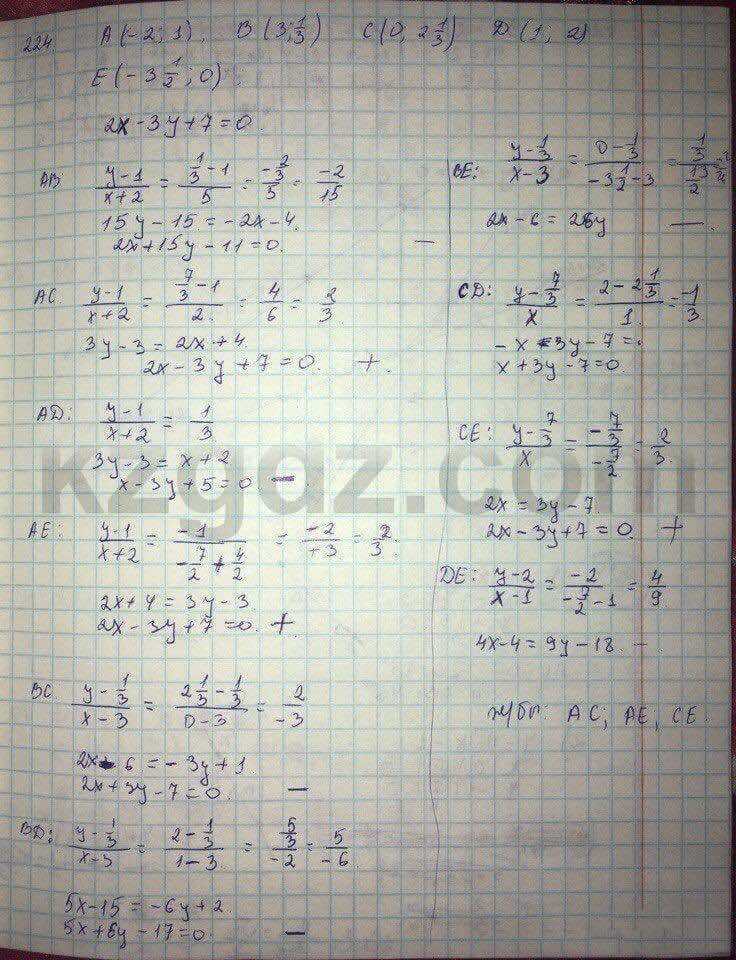 224 A(-2; 1). B(3; 1/3) C(0; 2 1/3) D(1; 2)
E(-3 1/2; 0).
2x - 3y + 7 = 0.
AB (y-1)/(x+2) = (1/3 - 1)/5 = (-2/3)/5 = -2/15
15y - 15 = -2x - 4.
2x + 15y - 11 = 0. —
AC. (y-1)/(x+2) = (7/3 - 1)/2. = 4/6 = 2/3.
3y - 3 = 2x + 4.
2x - 3y + 7 = 0. +.
AD: (y-1)/(x+2) = 1/3
3y - 3 = x + 2
x - 3y + 5 = 0. —
AE: (y-1)/(x+2) = -1/(-7/2 + 4/2) = -2/+3 = 2/3.
2x + 4 = 3y - 3.
2x - 3y + 7 = 0. +.
BC (y - 1/3)/(x-3) = (2 1/3 - 1/3)/(0-3) = 2/-3
2x - 6 = -3y + 1
2x + 3y - 7 = 0. —
BD: (y - 1/3)/(x-3) = (2 - 1/3)/(1-3) = (5/3)/-2 = 5/-6
5x - 15 = -6y + 2.
5x + 6y - 17 = 0. —
BE: (y - 1/3)/(x-3) = (0 - 1/3)/(-3 1/2 - 3) = (1/3)/(13/2)
2x - 6 = 26y —
CD: (y - 7/3)/x = (2 - 2 1/3)/1 = -1/3
-x - 3y - 7 =
x + 3y - 7 = 0.
CE: (y - 7/3)/x = (-7/3)/(-7/2) = 2/3.
2x = 3y - 7.
2x - 3y + 7 = 0. +
DE: (y-2)/(x-1) = -2/(-7/2 - 1) = 4/9
4x - 4 = 9y - 18. —
Ж/бы: AC; AE, CE.
kzgdz.com